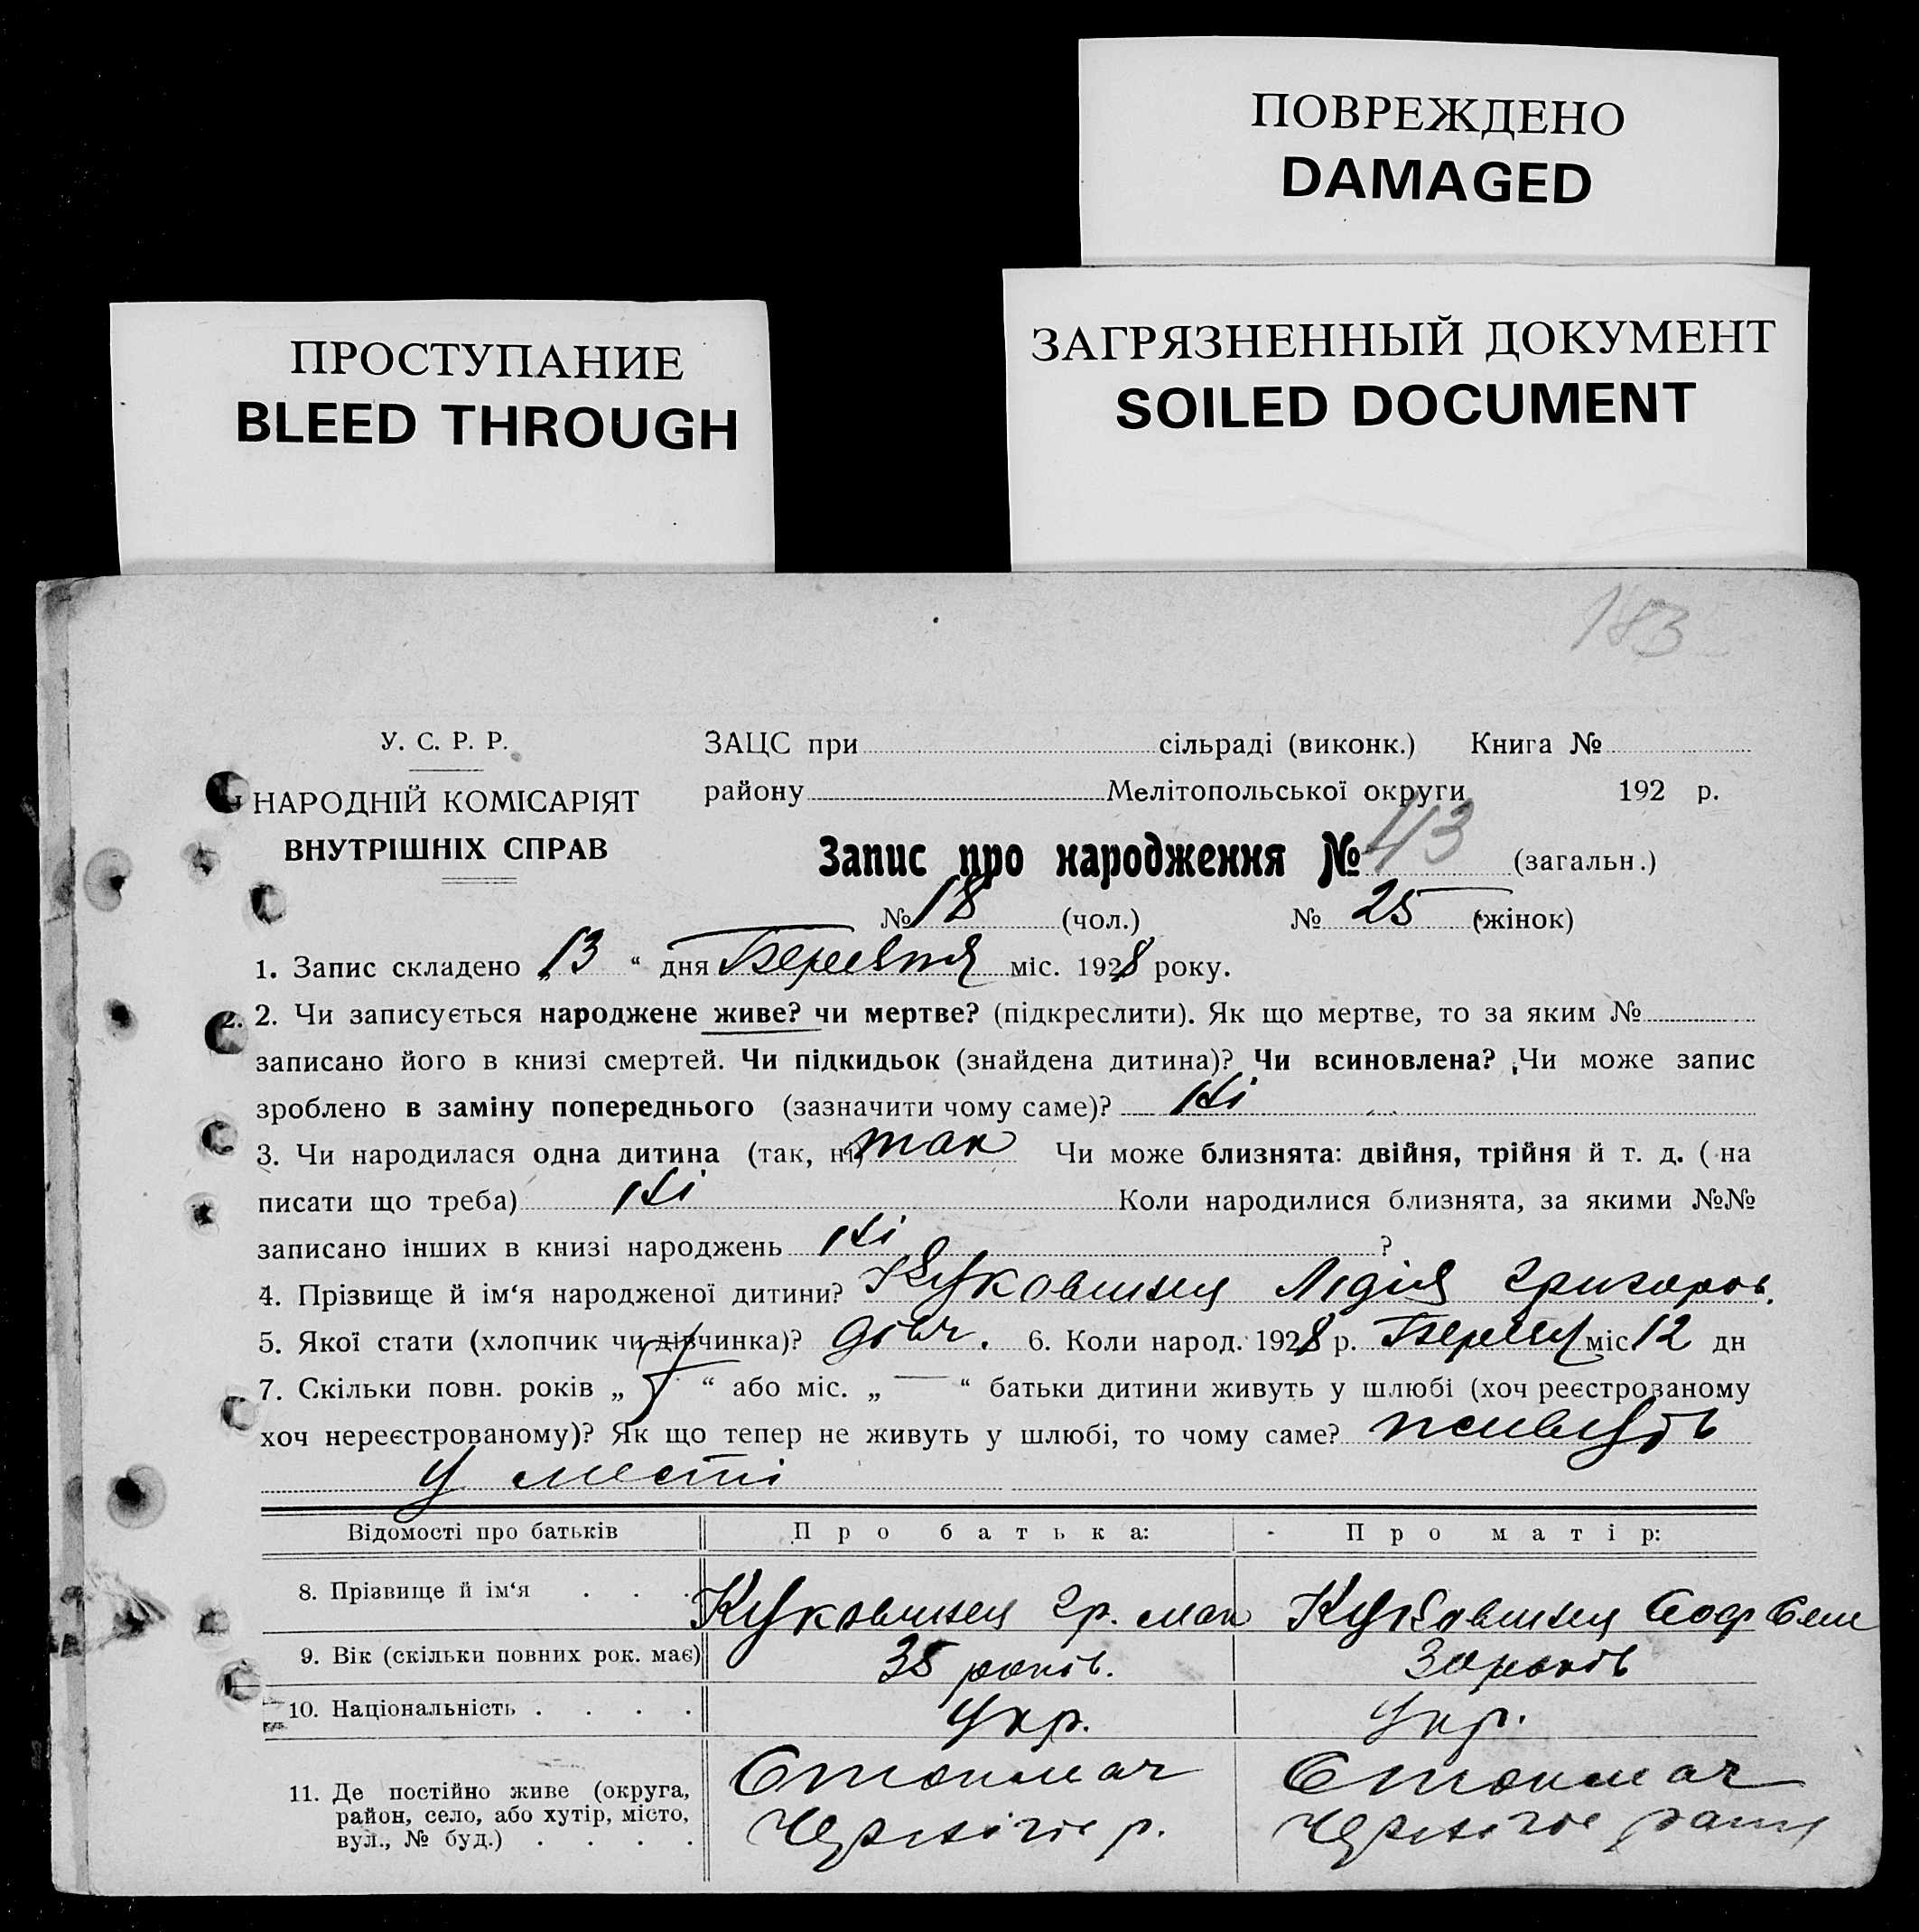 ПОВРЕЖДЕНО
DAMAGED
ПРОСТУПАНИЕ
BLEED THROUGH
ЗАГРЯЗНЕННЫЙ ДОКУМЕНТ
SOILED DOCUMENT
183
У. С. Р. Р.
НАРОДНІЙ КОМІСАРІЯТ
ВНУТРІШНІХ СПРАВ
ЗАЦС при сільраді (виконк.) Книга №
району Мелітопольської округи 192 р.
Запис про народження № 43 (загальн.)
№ 18 (чол.) № 25 (жінок)
1. Запис складено „13“ дня Березня міс. 1928 року.
2. Чи записується народжене живе? чи мертве? (підкреслити). Як що мертве, то за яким №
записано його в книзі смертей. Чи підкидьок (знайдена дитина)? Чи всиновлена? Чи може запис
зроблено в заміну попереднього (зазначити чому саме)? Ні
3. Чи народилася одна дитина (так, ні) так Чи може близнята: двійня, трійня й т. д. ( на
писати що треба) Ні Коли народилися близнята, за якими №№
записано інших в книзі народжень Ні ?
4. Прізвище й ім‘я народженої дитини? Лідія Григоров.
5. Якої стати (хлопчик чи дівчинка)? дівч. 6. Коли народ. 1928 р. Березня міс 12 дн
7. Скільки повн. років „ “ або міс. „ — “ батьки дитини живуть у шлюбі (хоч реєстрованому
хоч нереєстрованому)? Як що тепер не живуть у шлюбі, то чому саме? живуть
у
Відомості про батьків
Про батька:
Про матір:
8. Прізвище й ім‘я . . .
гр. мак
Соф
9. Вік (скільки повних рок. має)
35 років.
30 років
10. Національність . . . .
Укр.
Укр.
11. Де постійно живе (округа,
район, село, або хутір, місто,
вул., № буд.) . . . .
р.